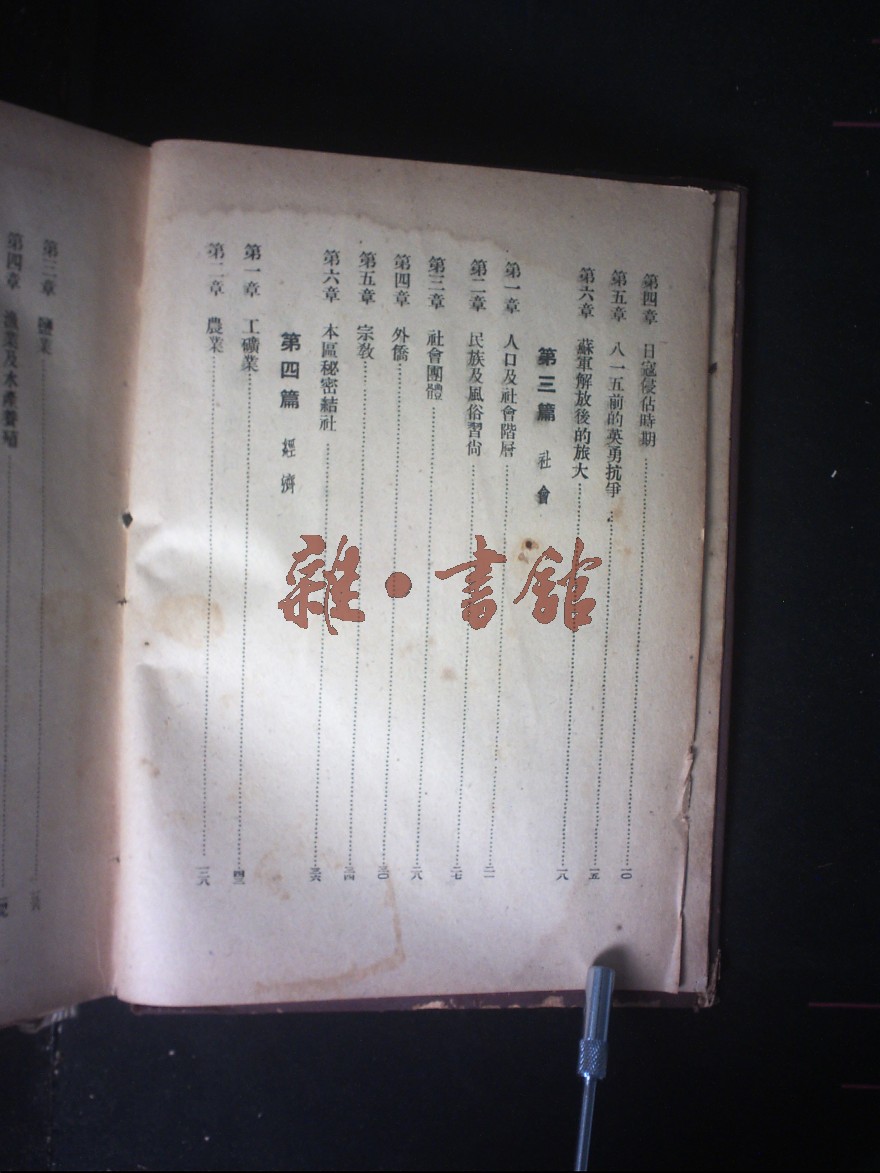 第四章 日寇侵佔時期……一〇
第五章 八一五前的英勇抗爭……一五
第六章 蘇軍解放後的旅大……一八
第三篇 社會
第一章 人口及社會階層……二一
第二章 民族及風俗習尙……二七
第三章 社會團體……二八
第四章 外僑……三〇
第五章 宗教……三四
第六章 本區秘密結社……三六
第四篇 經濟
第一章 工礦業……四三
第二章 農業……一三八
第三章 鹽業
第四章 漁業及水產養殖
雜·書館